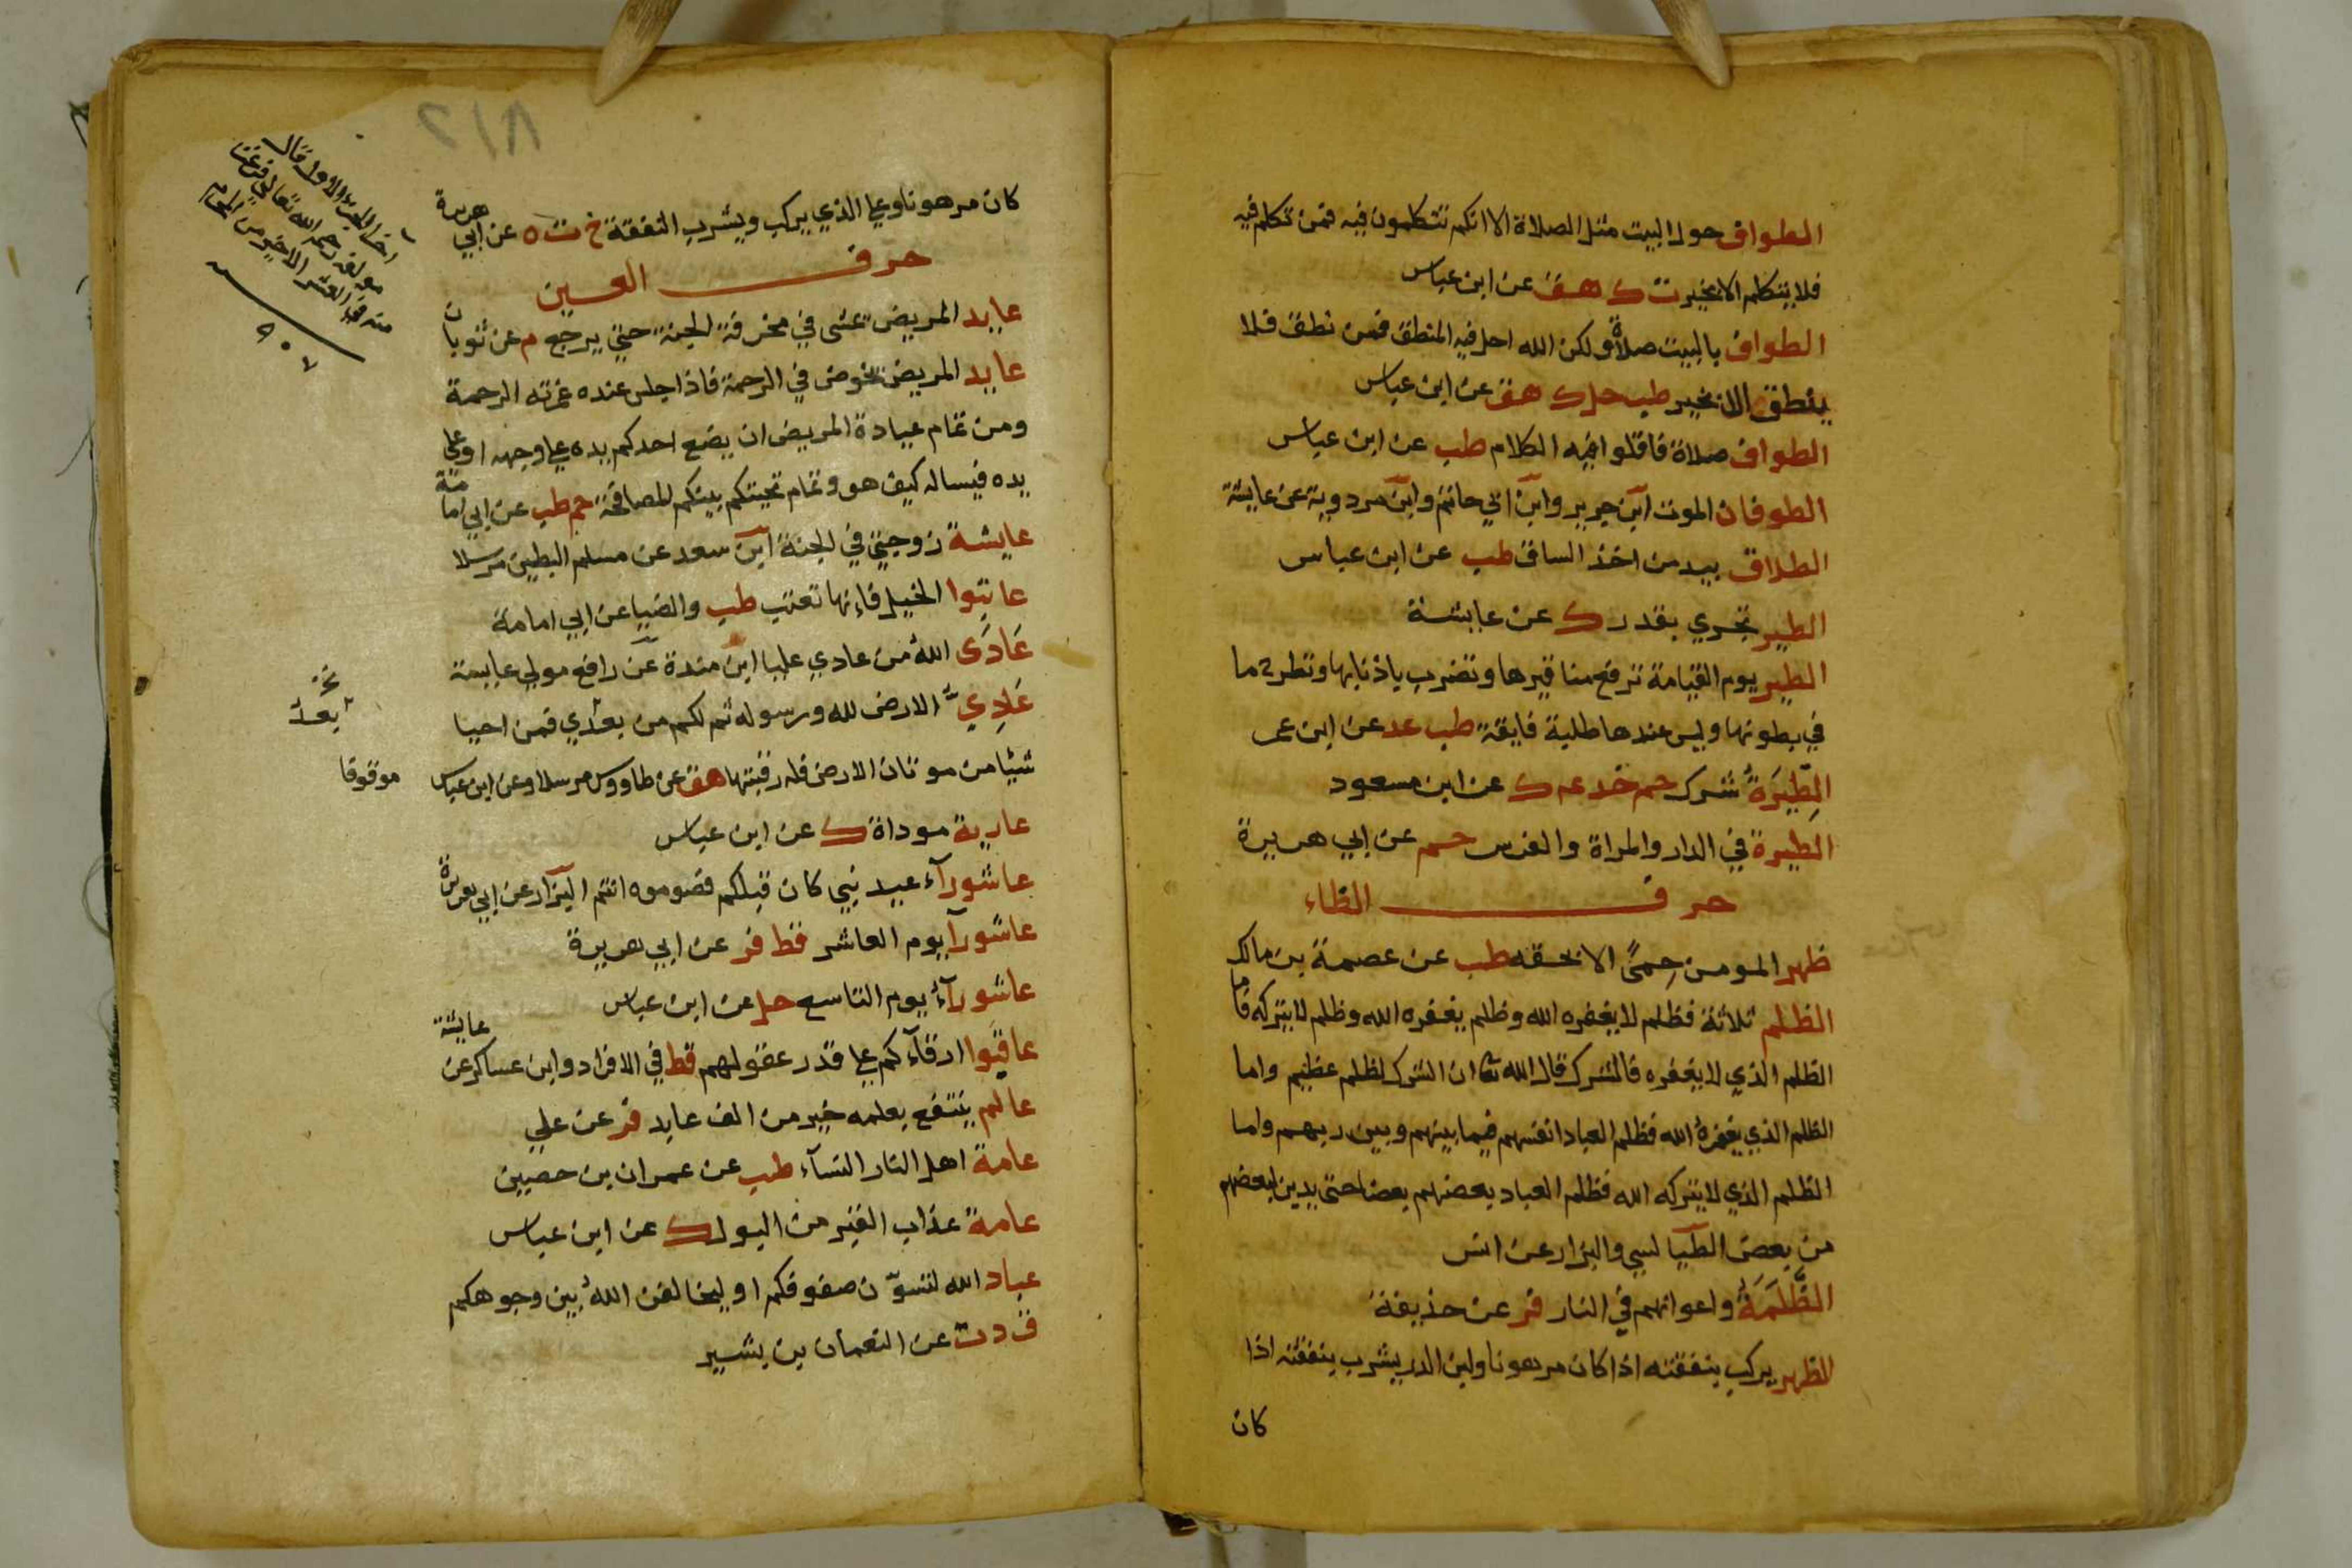 الطواف حول البيت مثل الصلاة الا انكم تتكلمون فيه فمن تكلم فيه
فلا يتكلم الا بخير ت ك هق عن ابن عباس
الطواف بالبيت صلاة ولكن الله احل فيه المنطق فمن نطق فلا
ينطق الا بخير طب حل ك هق عن ابن عباس
الطواف صلاة فاقلوا فيه الكلام طب عن ابن عباس
الطوفان الموت ابن جرير وابن ابي حاتم وابن مردوية عن عايشة
الطلاق بيد من اخذ الساق طب عن ابن عباس
الطير تجري بقدر ك عن عايشة
الطير يوم القيامة ترفع مناقيرها وتضرب باذنابها وتطرح ما
في بطونها وليس عندها طلبة فايقة طب عد عن ابن عمر
الطِّيَرَةُ شرك حم خد عه ك عن ابن مسعود
الطيرة في الدار والمراة والفرس حم عن ابي هريرة
حرف الظاء
ظهر المومن حِمىً الا بحقه طب عن عصمة بن مالك
الظلم ثلاثة فظلم لا يغفره الله وظلم يغفره الله وظلم لا يتركه فاما
الظلم الذي لا يغفره فالشرك قال الله تعا ان الشرك لظلم عظيم واما
الظلم الذي يغفرهُ الله فظلم العباد انفسهم فيما بينهم وبين ربهم واما
الظلم الذي لا يتركه الله فظلم العباد بعضهم بعضا حتى يدين لبعضهم
من بعض الطيالسي والبزار عن انس
الظَّلَمَةُ واعوانهم في النار فر عن حذيفة
الظهر يركب بنفقته اذا كان مرهونا ولبن الدر يشرب بنفقته اذا
كان
كان مرهونا وعلى الذي يركب ويشرب النفقة خ ت ه عن ابي هريرة
حرف العين
عايد المريض يمشى في مخرفة الجنة حتي يرجع م عن ثوبان
عايد المريض يخوض في الرحمة فاذا جلس عنده غمرته الرحمة
ومن تمام عيادة المريض ان يضع احدكم يده على وجهه او على
يده فيساله كيف هو وتمام تحيتكم بينكم المصافحة حم طب عن ابي امامة
عايشة زوجتي في الجنة ابن سعد عن مسلم البطين مرسلا
عاتبوا الخيل فإنها تعتب طب والضيا عن ابي امامة
عَادَى اللهُ من عادي عليا ابن مندة عن رافع مولي عايشة
عَادِيُّ الارض لله ورسوله ثم لكم من بعدي فمن احيا
شيئا من موتان الارض فله رقبتها هق عن طاووس مرسلا وعن ابن عباس موقوفا
عارية موداة ك عن ابن عباس
عاشورآء عيد نبي كان قبلكم فصوموه انتم البزار عن ابي هريرة
عاشورآ يوم العاشر قط فر عن ابي هريرة
عاشورآءُ يوم التاسع حل عن ابن عباس
عاقبوا ارقآءكم على قدر عقولهم قط في الافراد وابن عساكر عن عايشة
عالم ينتفع بعلمه خير من الف عابد فر عن علي
عامة اهل النار النسآء طب عن عمران بن حصين
عامة عذاب القبر من البول ك عن ابن عباس
عباد الله لتسوّن صفوفكم او ليخالفن اللهُ بين وجوهكم
ق د ت عن النعمان بن بشير
بعدُ